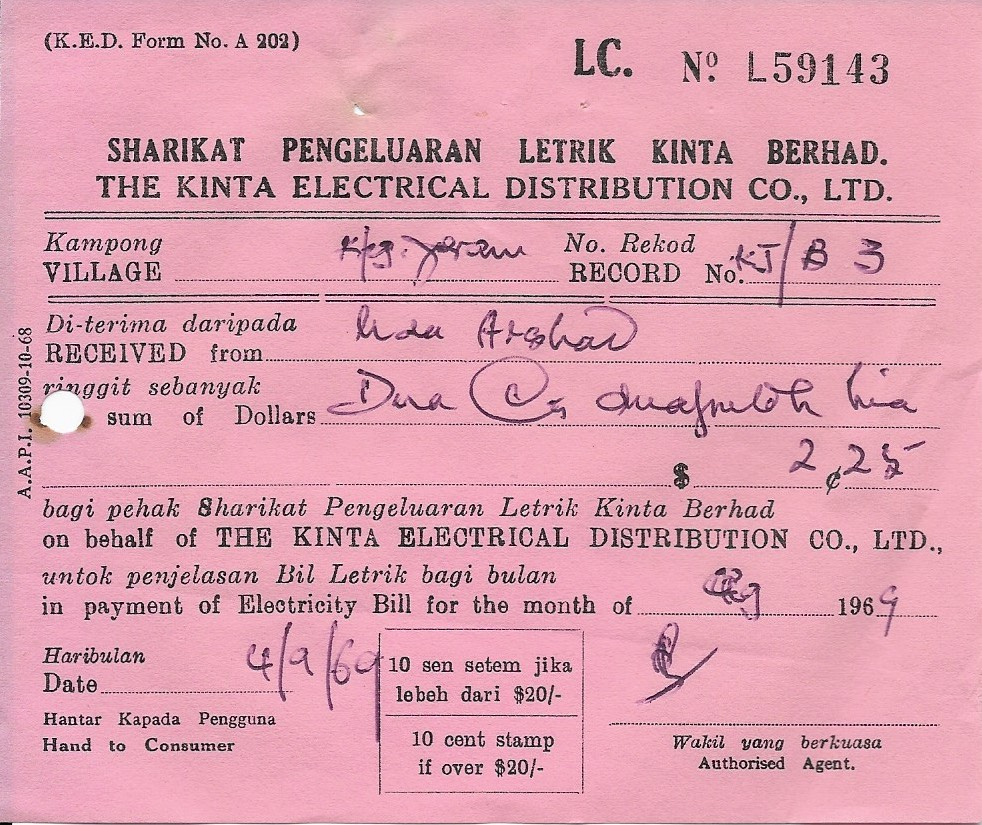 (K.E.D. Form No. A 202)
LC. Nº L59143
SHARIKAT PENGELUARAN LETRIK KINTA BERHAD.
THE KINTA ELECTRICAL DISTRIBUTION CO., LTD.
Kampong
VILLAGE Kg. Jeram
No. Rekod
RECORD No. KJ/B 3
Di-terima daripada
RECEIVED from Arshad
ringgit sebanyak
sum of Dollars Dua duapuloh lima
$ 2 ¢ 25
bagi pehak Sharikat Pengeluaran Letrik Kinta Berhad
on behalf of THE KINTA ELECTRICAL DISTRIBUTION CO., LTD.,
untok penjelasan Bil Letrik bagi bulan
in payment of Electricity Bill for the month of 1969
Haribulan
Date 4/9/69
10 sen setem jika
lebeh dari $20/-
10 cent stamp
if over $20/-
Hantar Kapada Pengguna
Hand to Consumer
Wakil yang berkuasa
Authorised Agent.
A.A.P.I. 10309-10-68